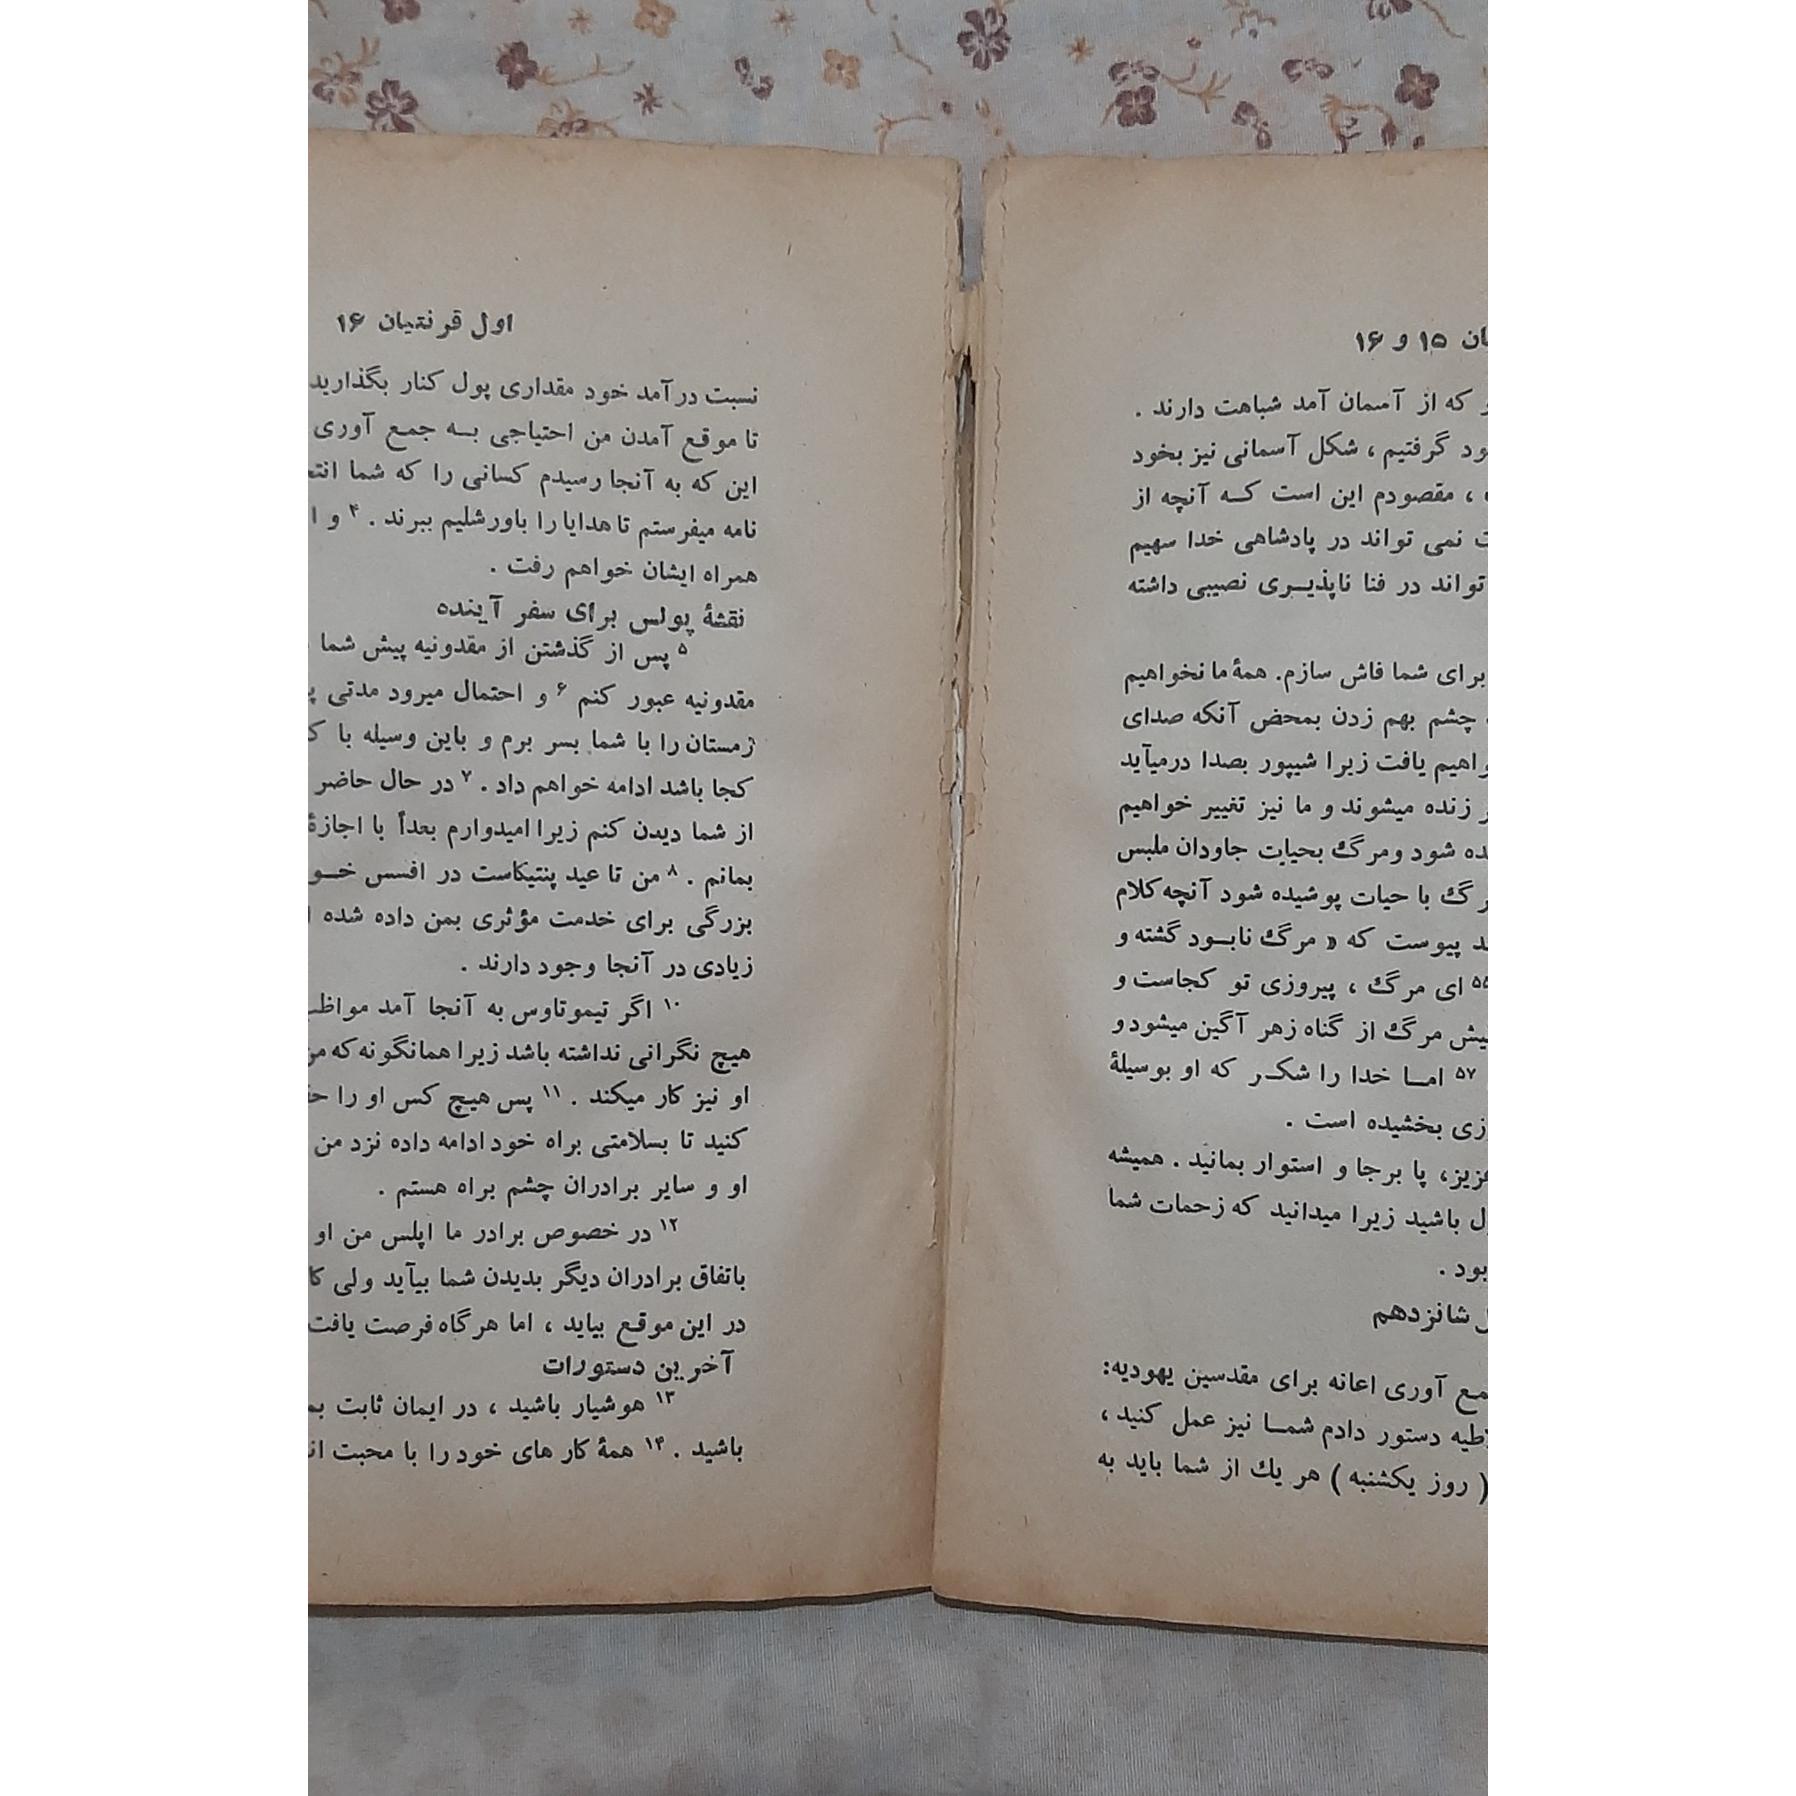 ۱۵ و ۱۶
که از آسمان آمد شباهت دارند .
گرفتیم ، شکل آسمانی نیز بخود
، مقصودم این است که آنچه از
نمی تواند در پادشاهی خدا سهیم
تواند در فنا ناپذیری نصیبی داشته
برای شما فاش سازم. همهٔ ما نخواهیم
چشم بهم زدن بمحض آنکه صدای
یافت زیرا شیپور بصدا درمیآید
زنده میشوند و ما نیز تغییر خواهیم
شود ومرگ بحیات جاودان ملبس
با حیات پوشیده شود آنچه کلام
پیوست که « مرگ نابود گشته و
۵۵ ای مرگ ، پیروزی تو کجاست و
مرگ از گناه زهر آگین میشود و
۵۷ اما خدا را شکر که او بوسیلهٔ
بخشیده است .
عزیز، پا برجا و استوار بمانید . همیشه
باشید زیرا میدانید که زحمات شما
بود .
شانزدهم
آوری اعانه برای مقدسین یهودیه:
دستور دادم شما نیز عمل کنید ،
( روز یکشنبه ) هر یك از شما باید به
اول قرنتیان ۱۶
نسبت درآمد خود مقداری پول کنار بگذارید
تا موقع آمدن من احتیاجی به جمع آوری
این که به آنجا رسیدم کسانی را که شما
نامه میفرستم تا هدایا را باورشلیم ببرند . ۴ و
همراه ایشان خواهم رفت .
نقشهٔ پولس برای سفر آینده
۵ پس از گذشتن از مقدونیه پیش شما
مقدونیه عبور کنم ۶ و احتمال میرود مدتی
زمستان را با شما بسر برم و باین وسیله با
کجا باشد ادامه خواهم داد . ۷ در حال حاضر
از شما دیدن کنم زیرا امیدوارم بعداً با اجازهٔ
بمانم . ۸ من تا عید پنتیکاست در افسس
بزرگی برای خدمت مؤثری بمن داده شده
زیادی در آنجا وجود دارند .
۱۰ اگر تیموتاوس به آنجا آمد
هیچ نگرانی نداشته باشد زیرا همانگونه که
او نیز کار میکند . ۱۱ پس هیچ کس او را
کنید تا بسلامتی براه خود ادامه داده نزد من
او و سایر برادران چشم براه هستم .
۱۲ در خصوص برادر ما اپلس من او
باتفاق برادران دیگر بدیدن شما بیآید ولی
در این موقع بیاید ، اما هرگاه فرصت یافت
آخرین دستورات
۱۳ هوشیار باشید ، در ایمان ثابت
باشید . ۱۴ همهٔ کار های خود را با محبت